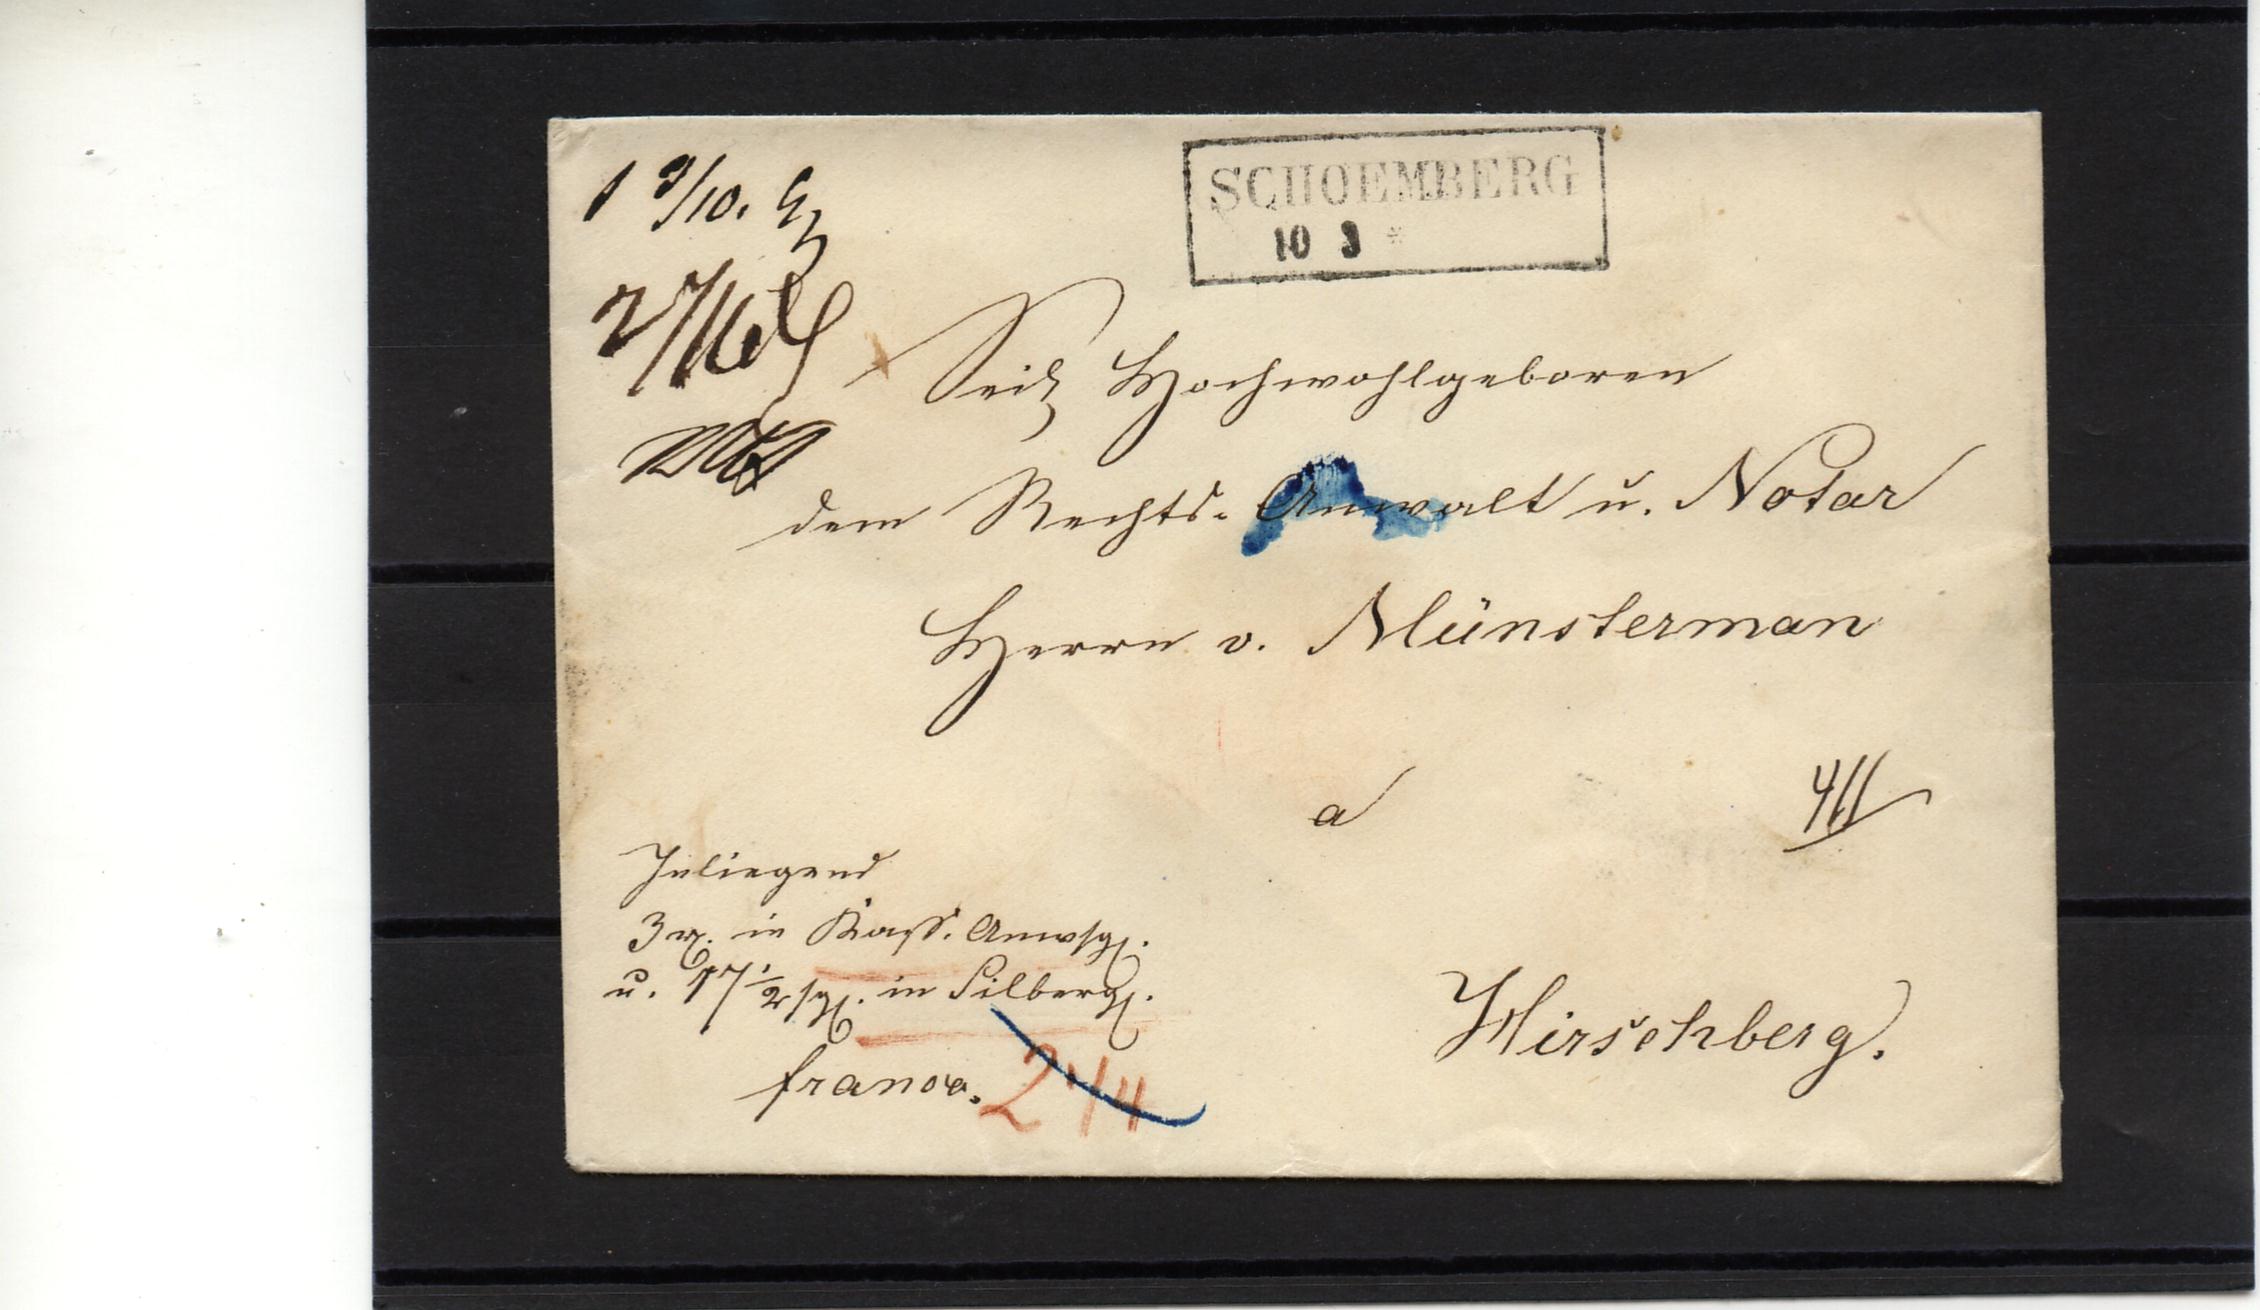 SCHOEMBERG
10 3 *
1 9/10.
Seiner Hochwohlgeboren
dem Rechts-Anwalt u. Notar
Herrn v. Münsterman
a
Hirschberg.
Inliegend
3 in Kass. Anwsg.
u. 17 1/2 sg. in Silberg.
franco. 2 1/4